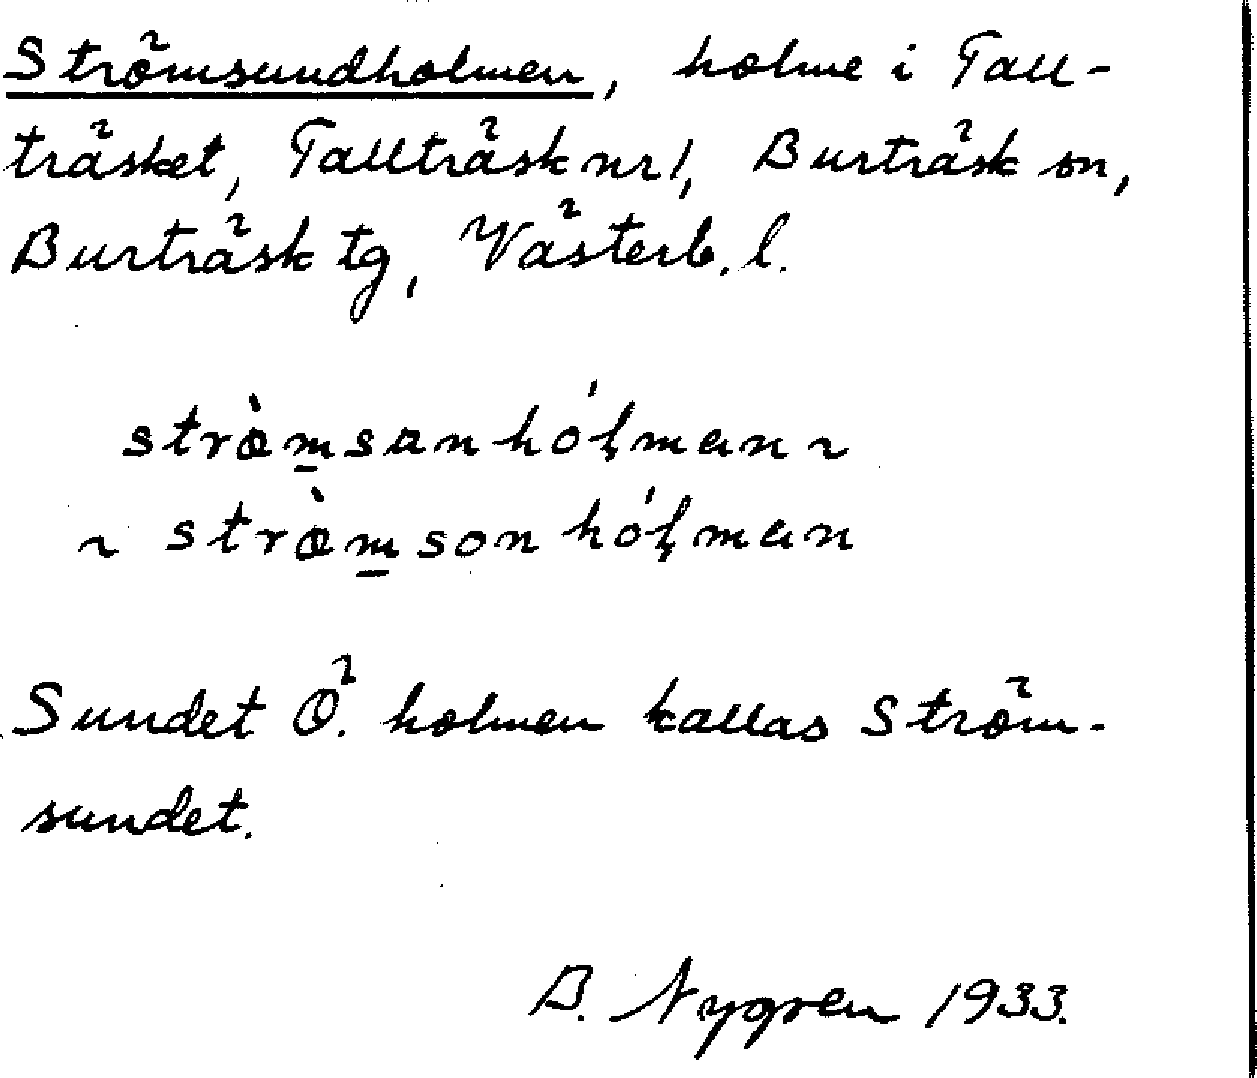 Strömsundholmen, holme i Tall-
träsket, Tallträsk nr 1, Burträsk sn,
Burträsk tg, Västerb. l.
strö̀m̲sanhólman ~
~ strö̀m̲sonhólman
Sundet Ö. holmen kallas Ström-
sundet.
B. Nygren 1933.